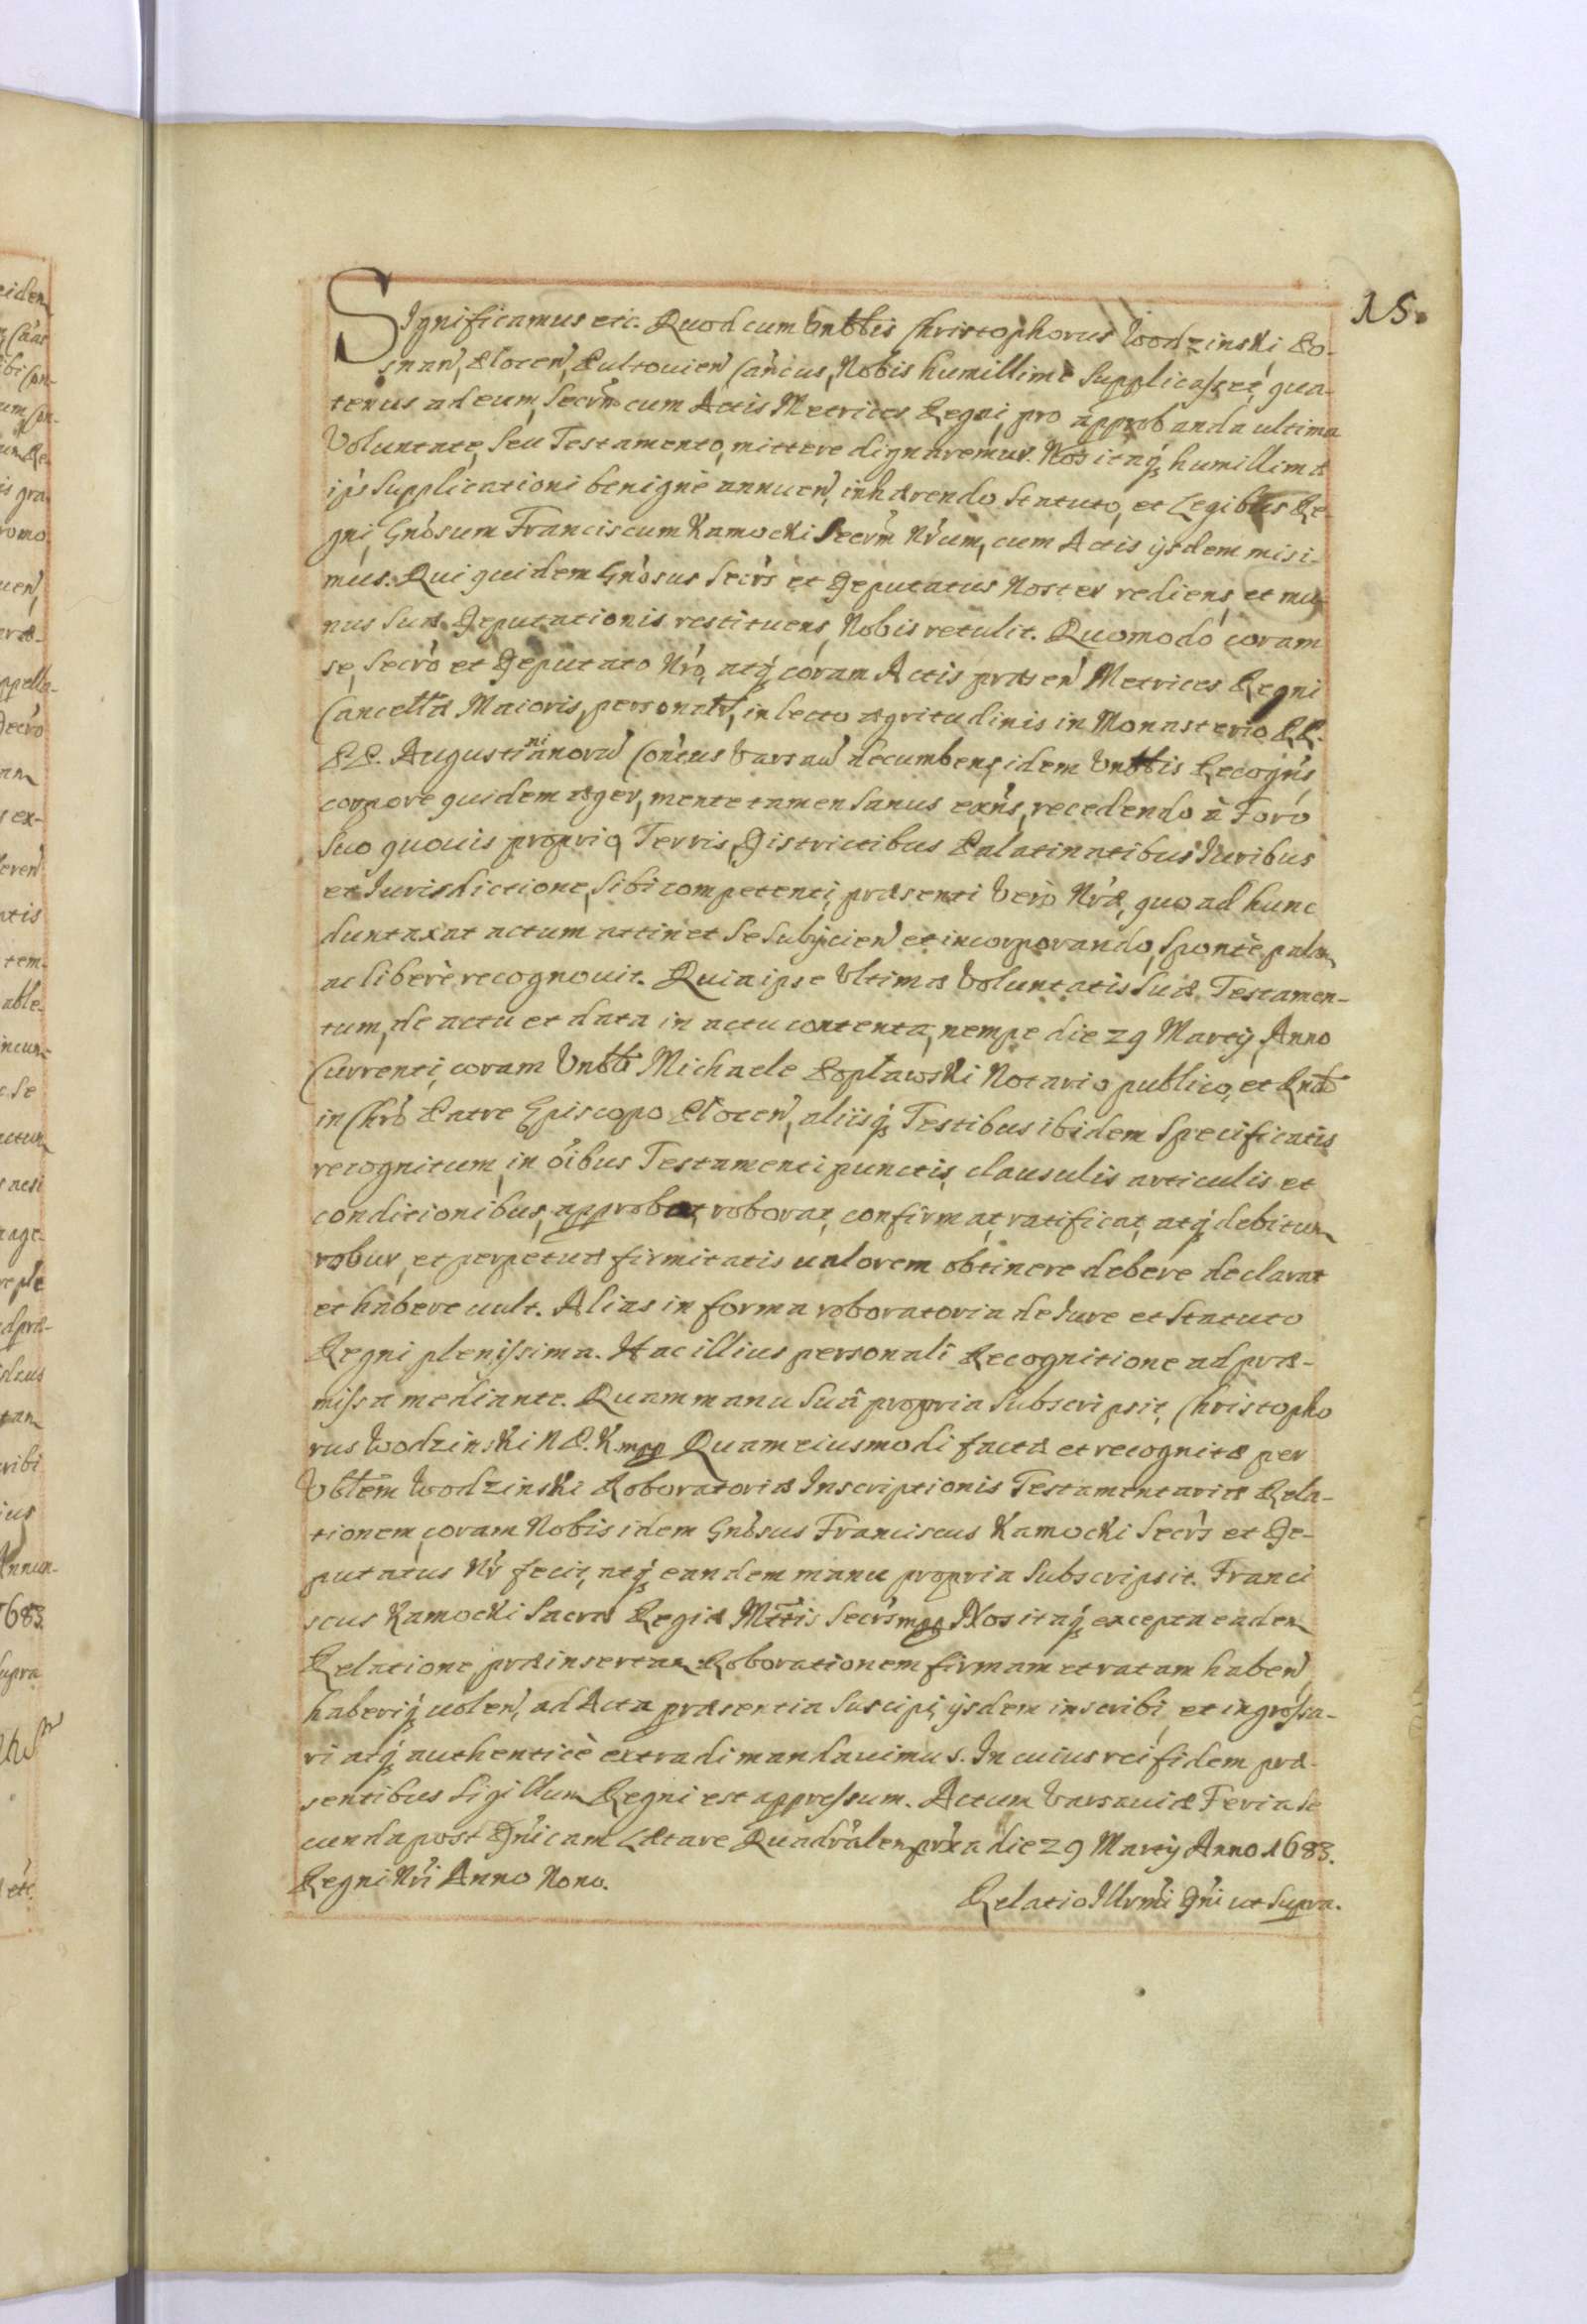 15.
Significamus etc. Quod cum Vnbtlis Christophorus Wodzinski Po-
snan, Plocen, Pultouien Cancus, Nobis humillimè supplicasset, qua-
tenus ad eum, Secrm cum Actis Metrices Regni, pro approbanda ultima
Voluntate, seu Testamento, mittere dignaremur. Nos itaq humillimæ
ips supplicationi benignè annuen, inhærendo Statuto, et Legibus Re-
gni, Gnosum Franciscum Kamocki Secrm Nrum, cum Actis ijsdem misi-
mus. Qui quidem Gnosus Secrs et Deputatus Noster rediens, et mu-
nus suæ Deputationis restituens, Nobis retulit. Quomodo coram
se, Secro et Deputato Nro, atq coram Actis præsen Metrices Regni
Cancellæ Maioris, personalr, in lecto ægritudinis in Monasterio RR.
PP. Augustinianoru Conuus Varsau decumbens, idem Vnbtlis Recogns,
corpore quidem æger, mente tamen sanus exns, recedendo à Foro
suo quouis proprio, Terris, Districtibus Palatinatibus Iuribus
et Iurisdictione, sibi competenti, præsenti verò Nræ, quo ad hunc
duntaxat actum attinet se subijcien et incorporando, spontè palam
ac liberè recognouit. Quia ipse Vltimæ Voluntatis suæ Testamen-
tum, de actu et data in actu contenta, nempe die 29 Martij, Anno
Currenti, coram Vnbtli Michaele Popławski Notario publico, et Rndo
in Chro Patre Episcopo Plocen, aliisq Testibus ibidem specificatis
recognitum, in oibus Testamenti punctis, clausulis articulis et
conditionibus, approbat, roborat, confirmat, ratificat, atq debitum
robur, et perpetuæ firmitatis ualorem obtinere debere declarat
et habere uult. Alias in forma roboratoria de Iure et Statuto
Regni plenissima. Hac illius personali Recognitione ad præ-
missa mediante. Quam manu suâ propria subscripsit, Christopho
rus Wodzinski N P. K. mpp Quam eiusmodi factæ et recognitæ per
Vbtlem Wodzinski Roboratoriæ Inscriptionis Testamentariæ Rela-
tionem, coram Nobis idem Gnosus Franciscus Kamocki Secrs et De-
putatus Nr fecit, atq eandem manu propria subscripsit. Franci
scus Kamocki Sacræ Regiæ Mttis Secrs mpp Nos itaq excepta eadem
Relatione, præinsertam Roborationem firmam et ratam haben,
haberiq uolen, ad Acta præsentia suscipi, ijsdem inscribi, et ingrossa-
ri atq authenticè extradi mandauimus. In cuius rei fidem præ-
sentibus Sigillum Regni est appressum. Actum Varsauiæ Feria se
cunda post Dnicam Lætare Quadralem prxa die 29 Martij Anno 1683.
Regni Nri Anno Nono.
Relatio Illrmi Dni ut supra.